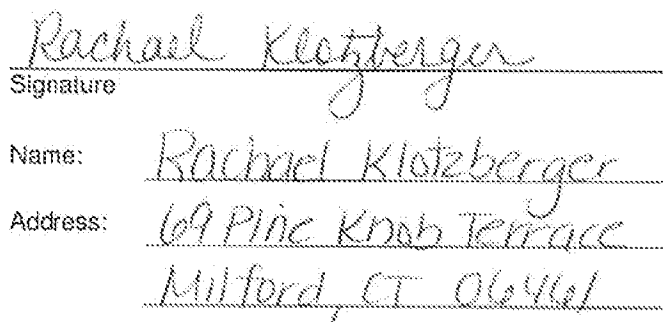 Rachael Klotzberger
Signature
Name: Rachael Klotzberger
Address: 69 Pine Knob Terrace
Milford, CT 06461